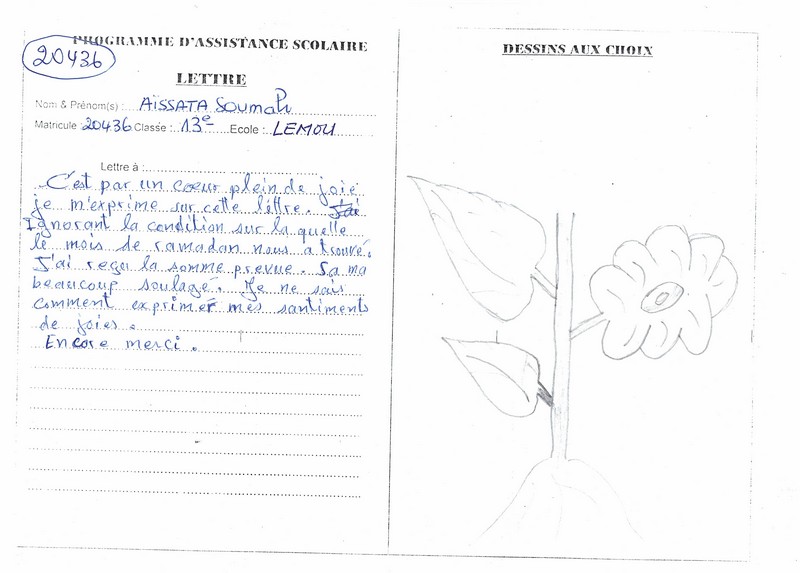 20436
PROGRAMME D'ASSISTANCE SCOLAIRE
LETTRE
Nom & Prénom(s) : AÏSSATA Soumah
Matricule : 20436 Classe : 13e Ecole : LEMOU
Lettre à :
C'est par un coeur plein de joie
je m'exprime sur cette lettre. J'ai
Ignorant la condition sur la quelle
le mois de ramadan nous a trouvé.
J'ai reçu la somme prevue. Sa ma
beaucoup soulagé. Je ne sais
comment exprimer mes santiments
de joies.
Encore merci.
DESSINS AUX CHOIX